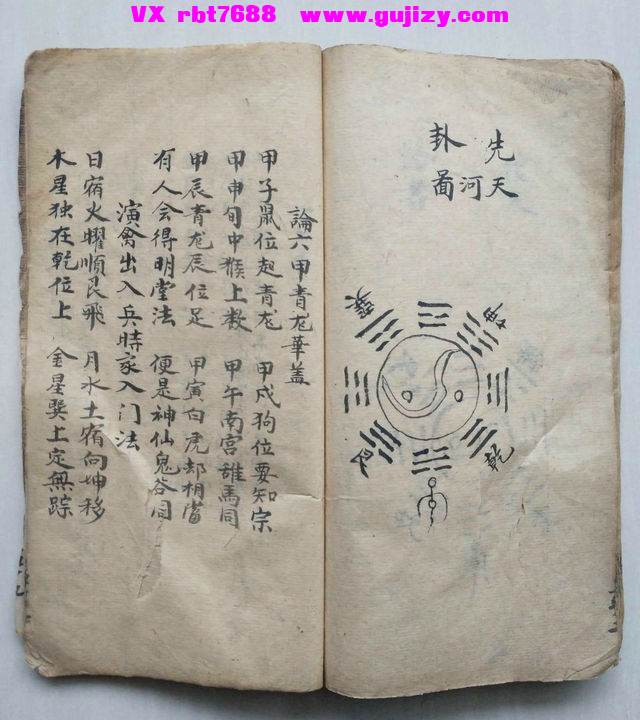 VX rbt7688 www.gujizy.com
先天
河
卦啚
巽
坤
艮
乾
論六甲青龙華盖
甲子鼠位起青龙 甲戍狗位要知宗
甲申旬中猴上数 甲午南宫雄馬同
甲辰青龙辰位足 甲寅白虎却相當
有人会得明堂法 便是神仙鬼谷同
演禽出入兵時家入门法
日宿火曜順艮飛 月水土宿向坤移
木星独在乾位上 金星巽上定無踪